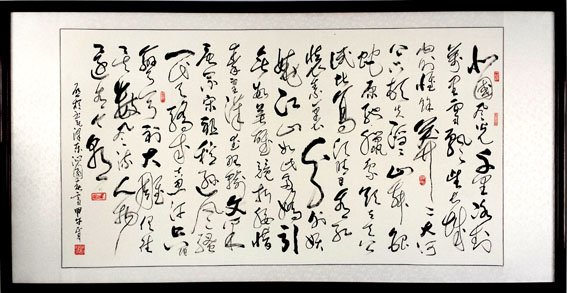 北國風光千里冰封
萬里雪飄望長城
內外惟餘莽〻大河
上下頓失滔〻山舞銀
蛇原馳蠟象欲與天公
試比高須晴日看紅
裝素裹分外妖
嬈江山如此多嬌引
無數英雄競折腰惜
秦皇漢武略輸文采
唐宗宋祖稍遜風騷
一代天驕成吉思汗只識
彎弓射大雕俱往
矣數風流人物
還看今朝
毛澤東沁園春雪甲午